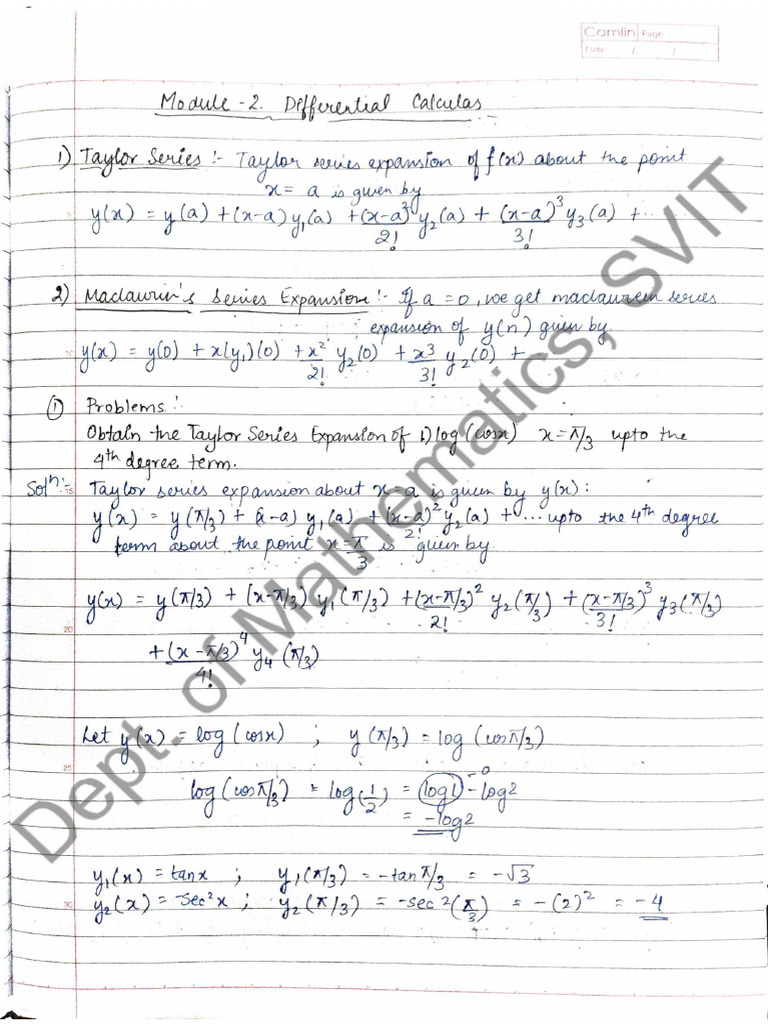 Camlin Page
Date / /
Module - 2. Differential Calculas
1) Taylor Series :- Taylor series expansion of f(x) about the point
x = a is given by
y(x) = y(a) + (x-a) y₁(a) + (x-a)²/2! y₂(a) + (x-a)³/3! y₃(a) + ...
2) Maclaurin's Series Expansion :- If a = 0, we get maclaurein series
expansion of y(n) given by
y(x) = y(0) + x(y₁)(0) + x²/2! y₂(0) + x³/3! y₂(0) + ...
① Problems :
Obtain the Taylor Series Expansion of 1) log(cosx) x = π/3 upto the
4th degree term.
Solⁿ :- Taylor series expansion about x = a is given by y(x) :
y(x) = y(π/3) + (x-a) y₁(a) + (x-a)²/2! y₂(a) + ... upto the 4th degree
term about the point x = π/3 is given by
y(x) = y(π/3) + (x-π/3) y₁(π/3) + (x-π/3)²/2! y₂(π/3) + (x-π/3)³/3! y₃(π/3)
20
+ (x-π/3)⁴/4! y₄(π/3)
Let y(x) = log(cosx) ; y(π/3) = log(cosπ/3)
25
log(cosπ/3) = log(1/2) = log1 - log2
0
= -log2
y₁(x) = tanx ; y₁(π/3) = -tanπ/3 = -√3
y₂(x) = -sec²x ; y₂(π/3) = -sec²(π/3) = -(2)² = -4
30
Dept. of Mathematics, SVIT